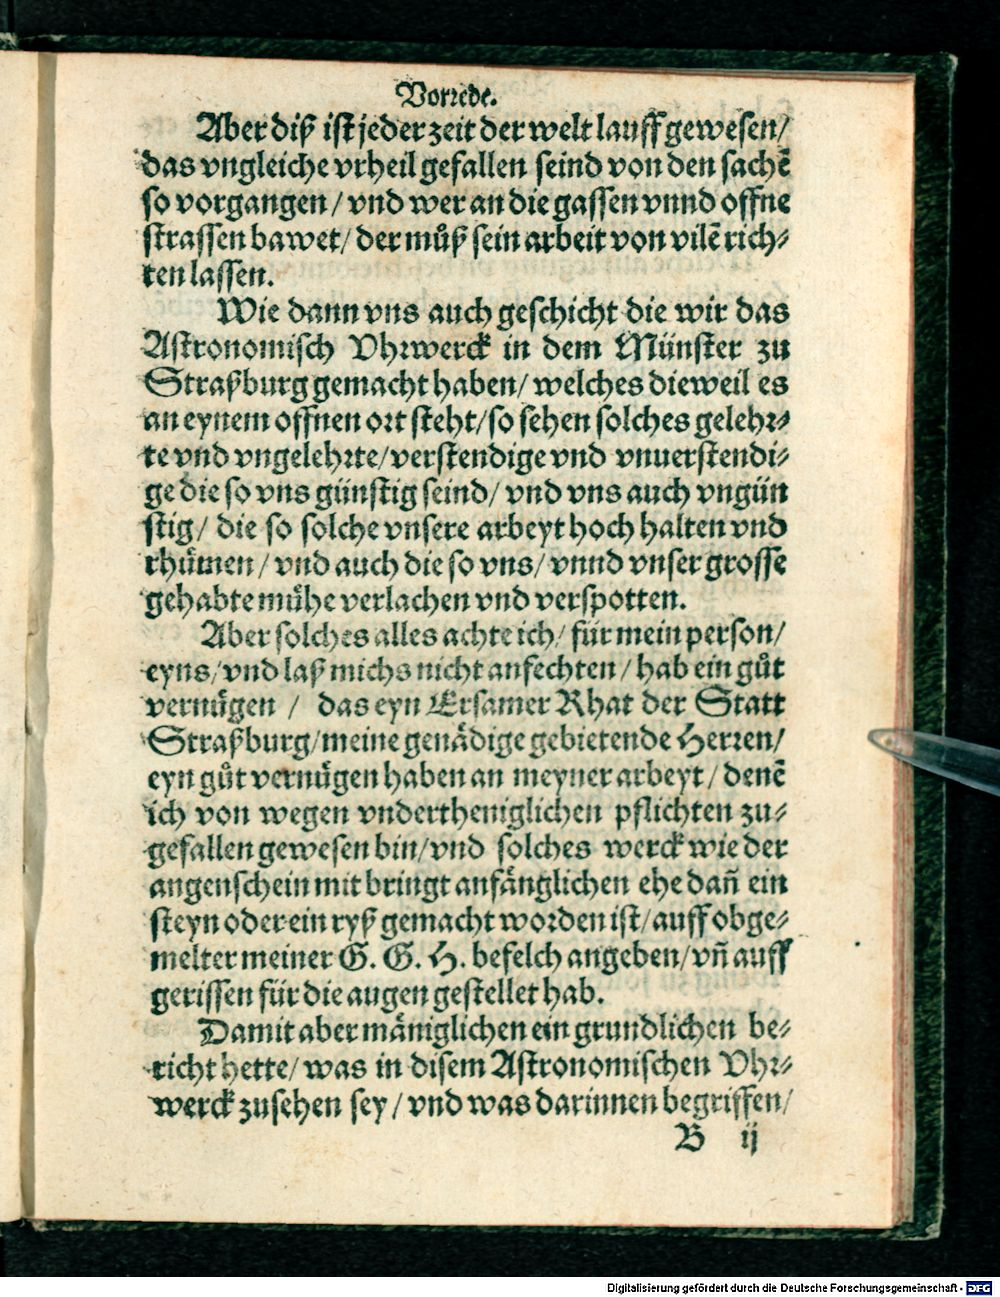 Vorrede.
Aber diß ist jeder zeit der welt lauff gewesen/
das vngleiche vrheil gefallen seind von den sachẽ
so vorgangen/ vnd wer an die gassen vnnd offne
strassen bawet/ der můß sein arbeit von vilẽ rich⸗
ten lassen.
Wie dann vns auch geschicht die wir das
Astronomisch Vhrwerck in dem Münster zu
Straßburg gemacht haben/ welches dieweil es
an eynem offnen ort steht/ so sehen solches gelehr⸗
te vnd vngelehrte/ verstendige vnd vnuerstendi⸗
ge die so vns günstig seind/ vnd vns auch vngün
stig/ die so solche vnsere arbeyt hoch halten vnd
rhümen/ vnd auch die so vns/ vnnd vnser grosse
gehabte mühe verlachen vnd verspotten.
Aber solches alles achte ich/ für mein person/
eyns/ vnd laß michs nicht anfechten/ hab ein gůt
vernügen/ das eyn Ersamer Rhat der Statt
Straßburg/ meine genädige gebietende Herren/
eyn gůt vernügen haben an meyner arbeyt/ denẽ
ich von wegen vndertheniglichen pflichten zu⸗
gefallen gewesen bin/ vnd solches werck wie der
angenschein mit bringt anfänglichen ehe dañ ein
steyn oder ein ryß gemacht worden ist/ auff obge⸗
melter meiner G. G. H. befelch angeben/ vñ auff
gerissen für die augen gestellet hab.
Damit aber mäniglichen ein grundlichen be⸗
richt hette/ was in disem Astronomischen Vhr⸗
werck zusehen sey/ vnd was darinnen begriffen/
B ij
Digitalisierung gefördert durch die Deutsche Forschungsgemeinschaft - DFG